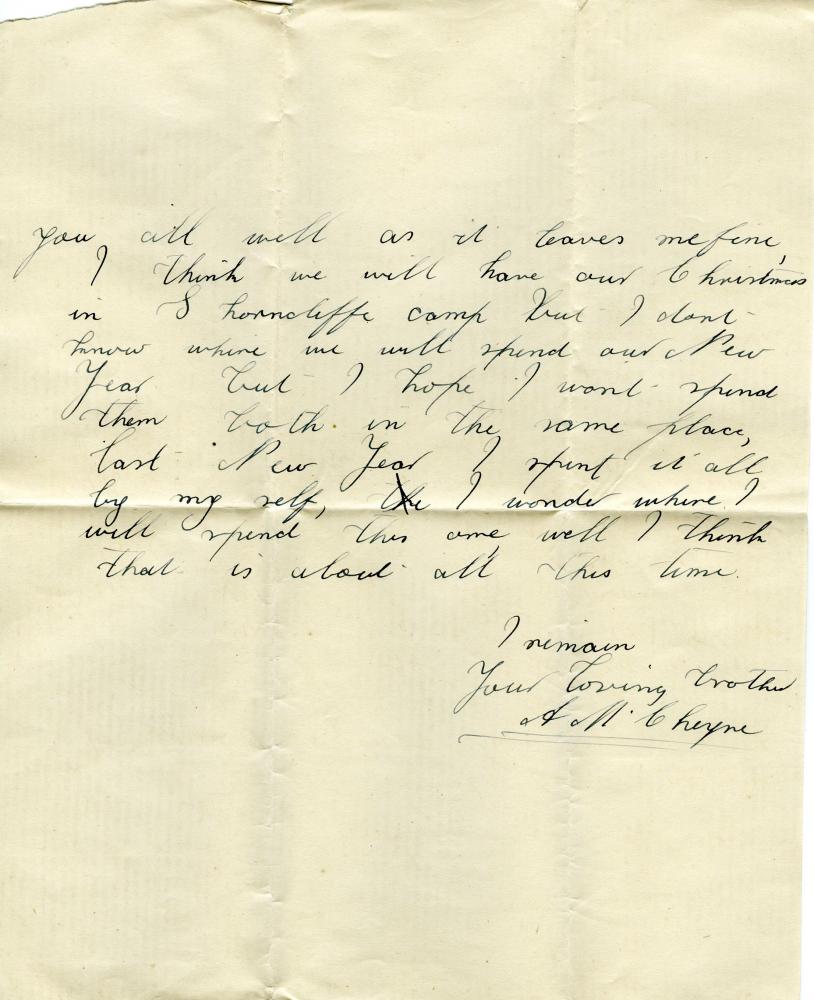 you all well as it leaves me fine,
I think we will have our Christmas
in Shorncliffe camp but I dont
know where we will spend our New
Year but I hope I wont spend
them both in the same place,
last New Year I spent it all
by my self, the I wonder where I
will spend this one, well I think
that is about all this time.
I remain
Your loving brother
A M Cheyne